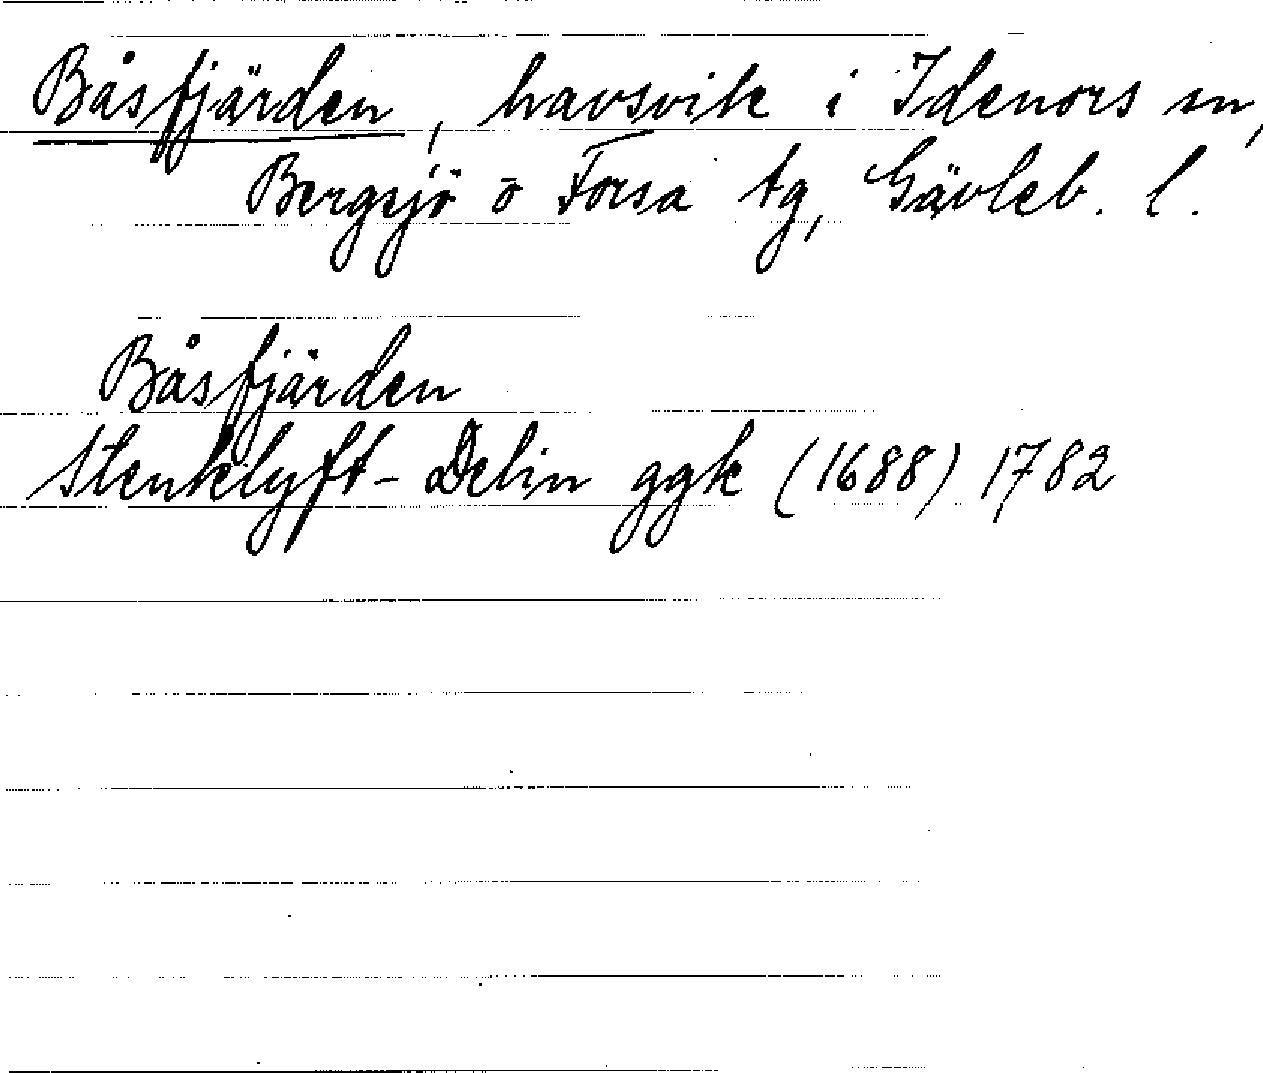 Båsfjärden, havsvik i Idenors sn,
Bergsjö o Forsa tg, Gävleb. l.
Båsfjärden
Stenklyft - Delin ggk (1688) 1782